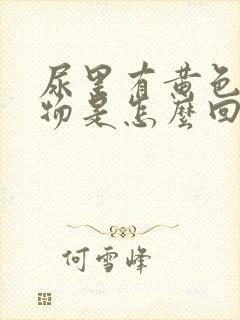 尿里有黄色
物是怎麽回
何雪峰